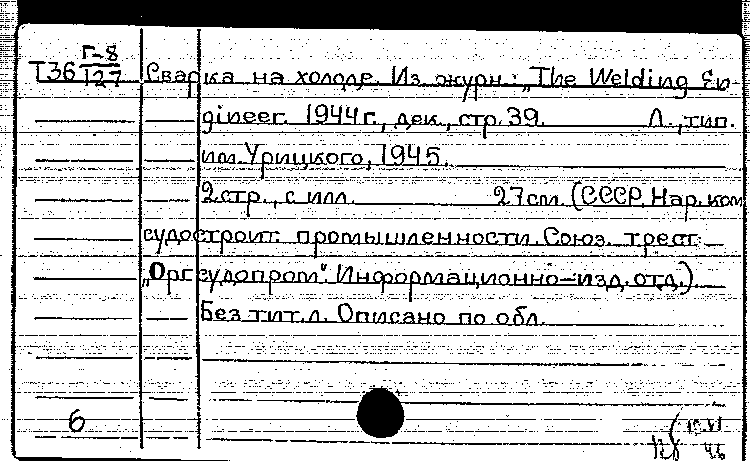 Г-8
Т36 127 Сварка на холоде. Из журн.: „The Welding En-
gineer. 1944 г., дек., стр. 39. Л., тип.
им. Урицкого, 1945.
2 стр., с илл. 27 см. (СССР. Нар. ком
судостроит. промышленности. Союз. трест
„Оргсудопром". Информационно-изд. отд.)
Без тит. л. Описано по обл.
6